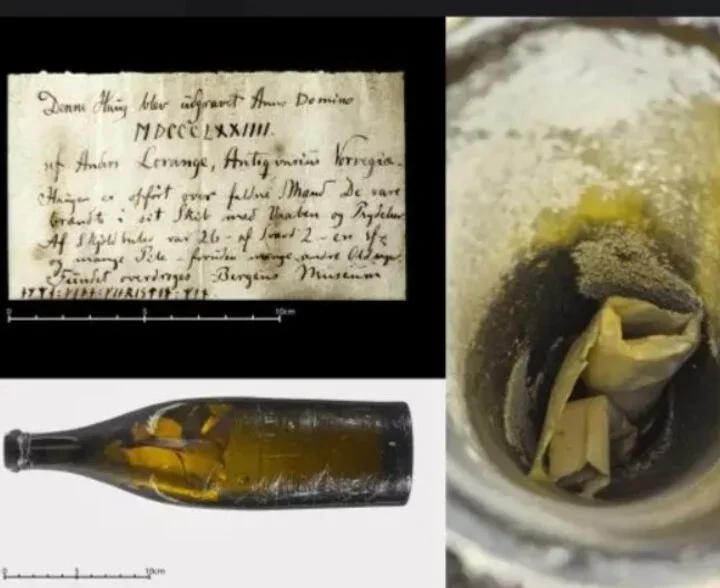 Denne Haug blev udgravet Anno Domino
MDCCCLXXIIII.
af Anders Lorange, Antiqvarius Norvegiæ.
Haugen er opført over faldne Mænd De vare
brændte i sit Skib med Vaaben og Prydelser
Af Skjoldbuler var 26 - af Sværd 2 - en
og mange Pile - foruden mange andre
Fundet overdroges Bergens Museum
0 5 10cm
0 5 10cm